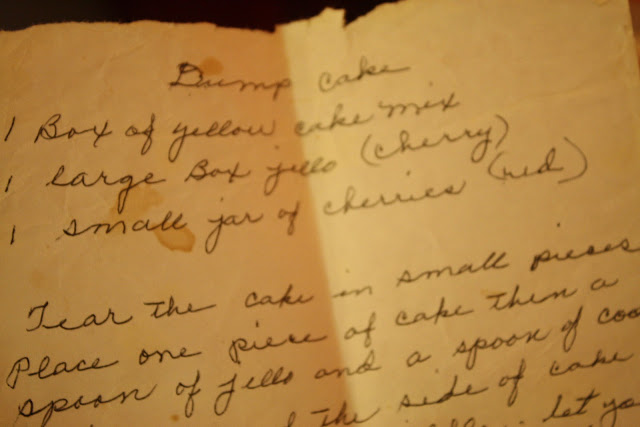 Dump cake
1 Box of yellow cake mix
1 large Box jello (cherry)
1 small jar of cherries (red)
Tear the cake in small pieces
Place one piece of cake then a
spoon of jello and a spoon of coo
the side of cake
let yo